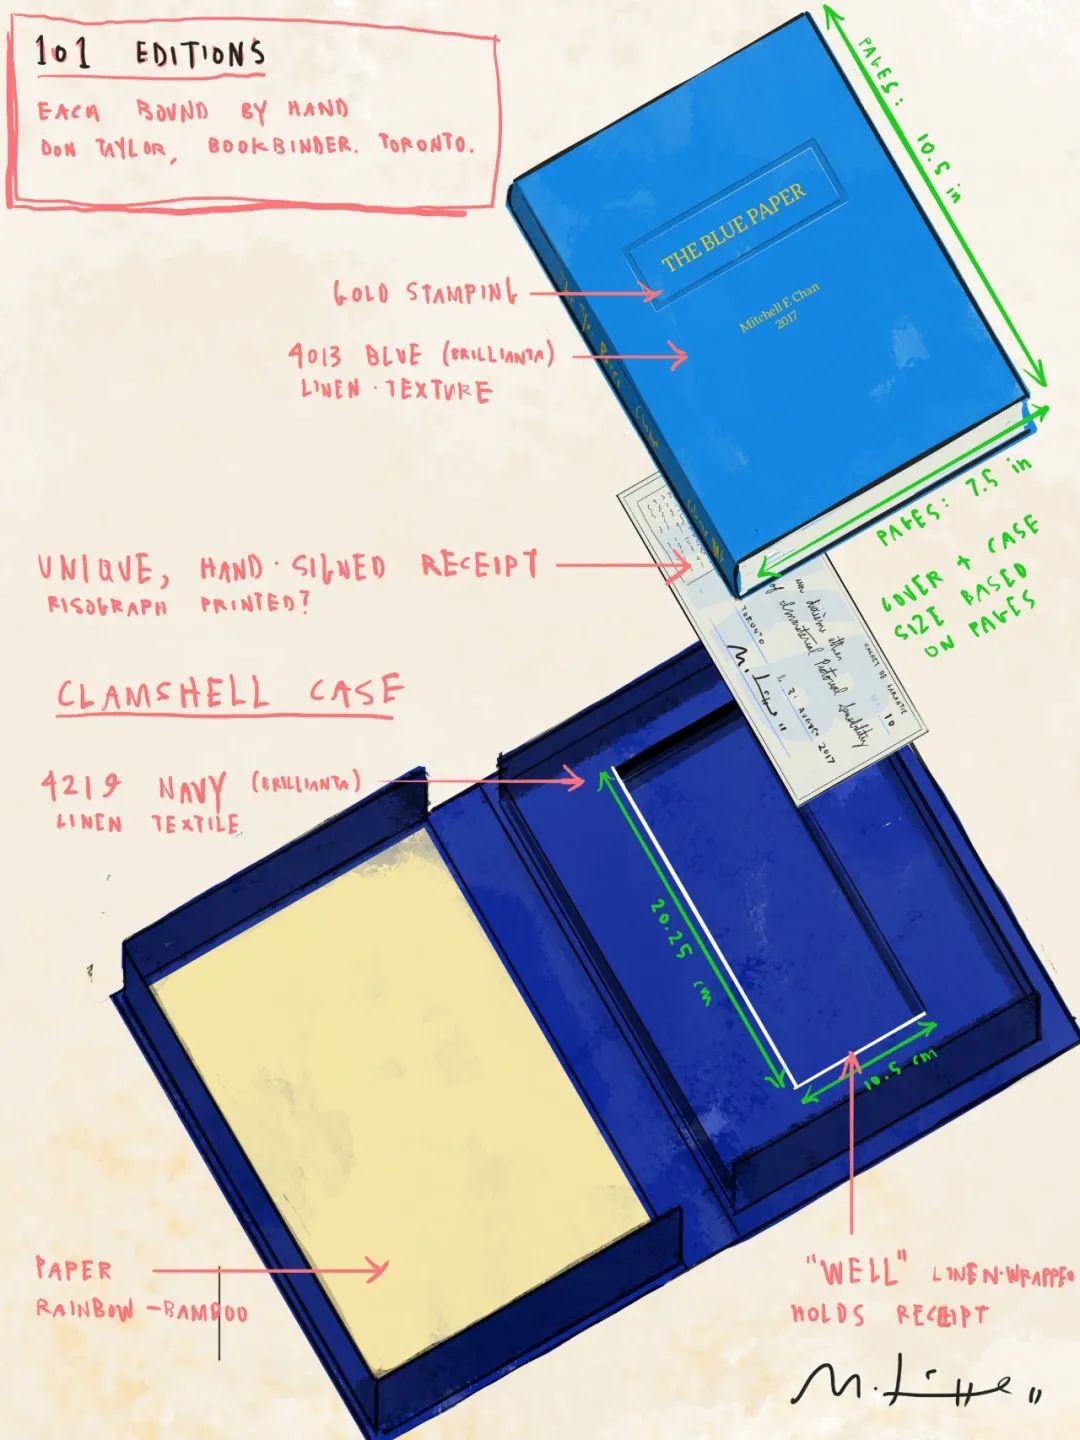 101 EDITIONS
EACH BOUND BY HAND
DON TAYLOR, BOOKBINDER. TORONTO.
PAGES: 10.5 in
THE BLUE PAPER
Mitchell F. Chan
2017
GOLD STAMPING
4013 BLUE (BRILLIANTA)
LINEN-TEXTURE
PAGES: 7.5 in
COVER + CASE
SIZE BASED
ON PAGES
UNIQUE, HAND-SIGNED RECEIPT
RISOGRAPH PRINTED?
TORONTO
31 AUGUST 2017
10
CLAMSHELL CASE
4219 NAVY (BRILLIANTA)
LINEN TEXTILE
20.25 cm
10.5 cm
PAPER
RAINBOW-BAMBOO
"WELL" LINEN-WRAPPED
HOLDS RECEIPT